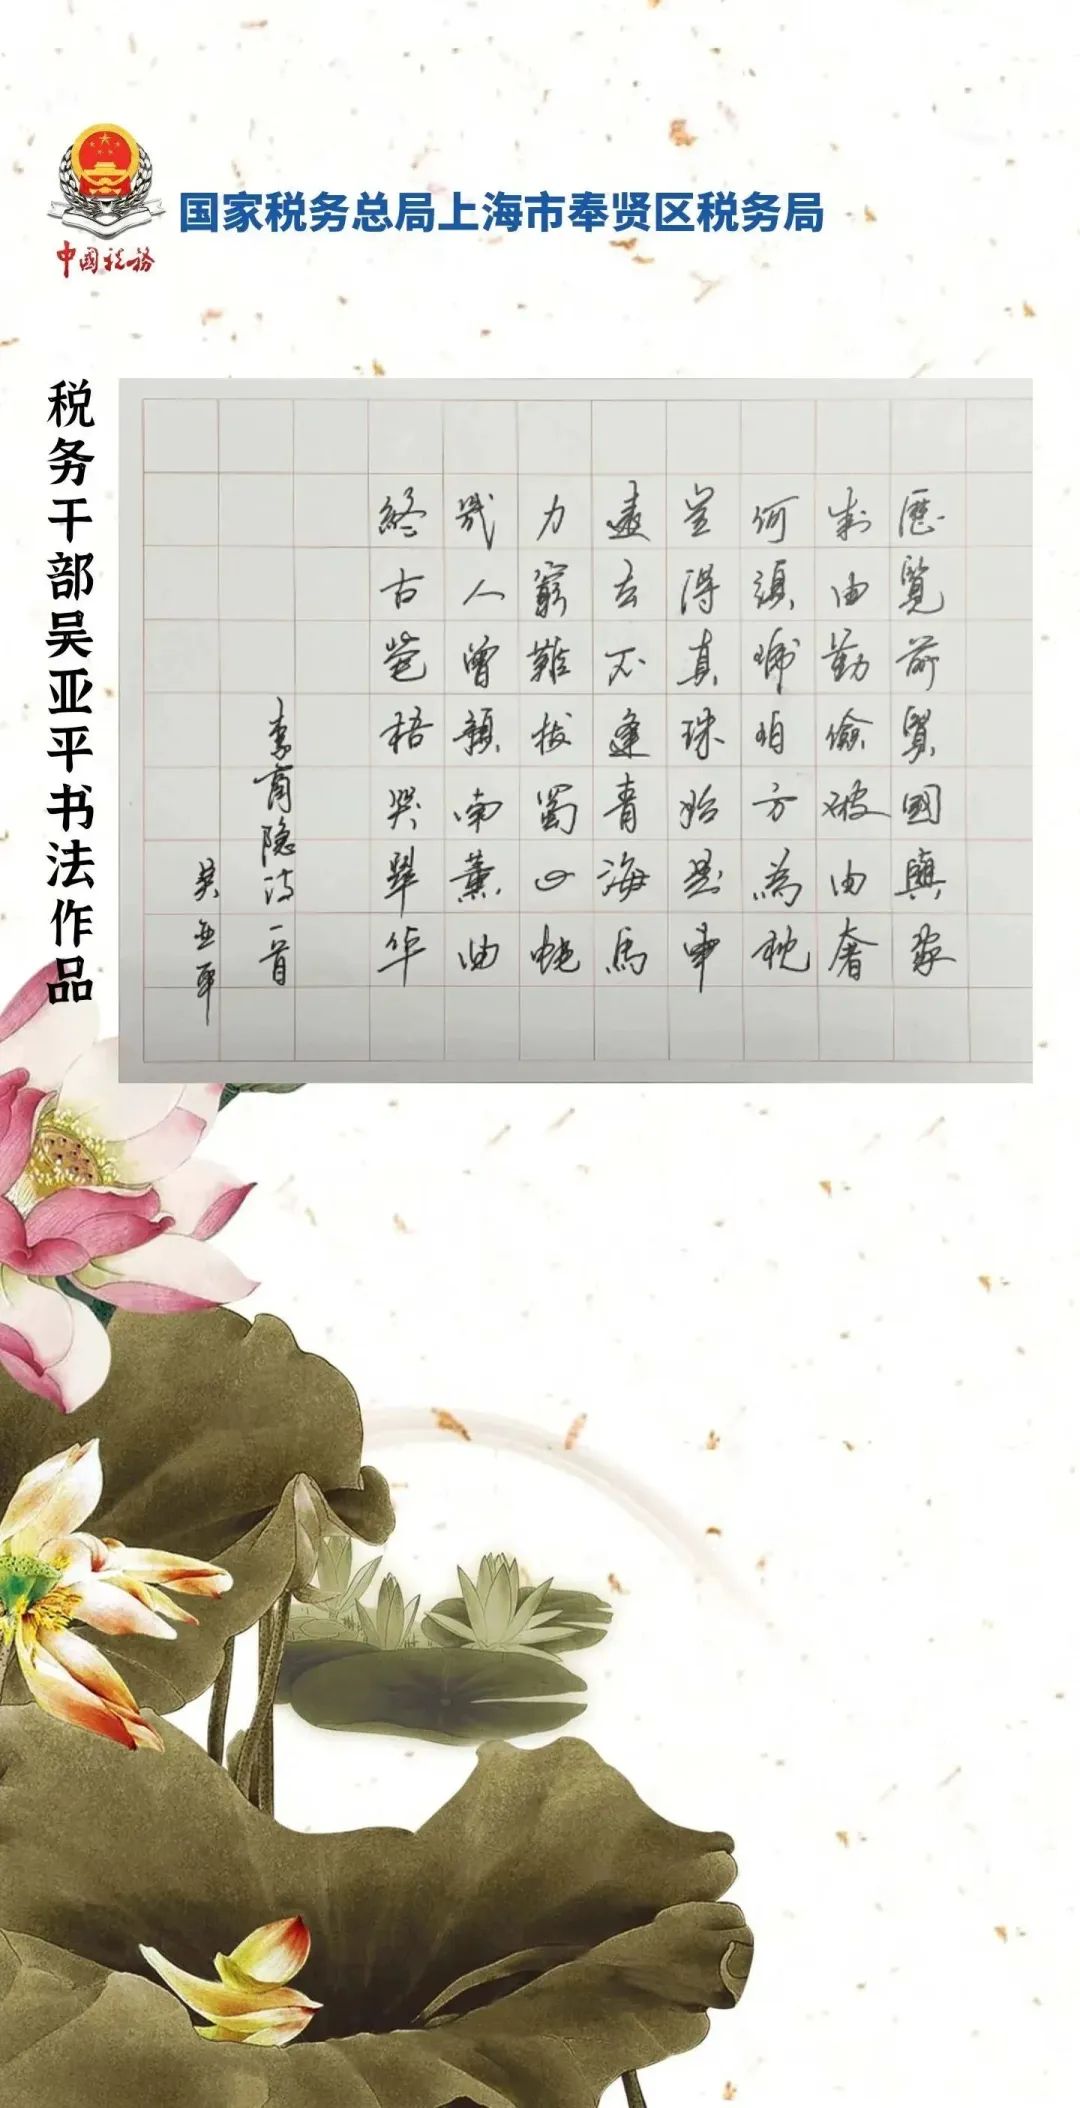 国家税务总局上海市奉贤区税务局
中國税務
税务干部吴亚平书法作品
歷覽前賢國與家
由勤儉破由奢
何須琥珀方為枕
豈得真珠始是車
去不逢青海馬
力窮難拔蜀山蛇
幾人曾預南薰曲
終古蒼梧哭翠华
李商隐诗一首
吴亚平